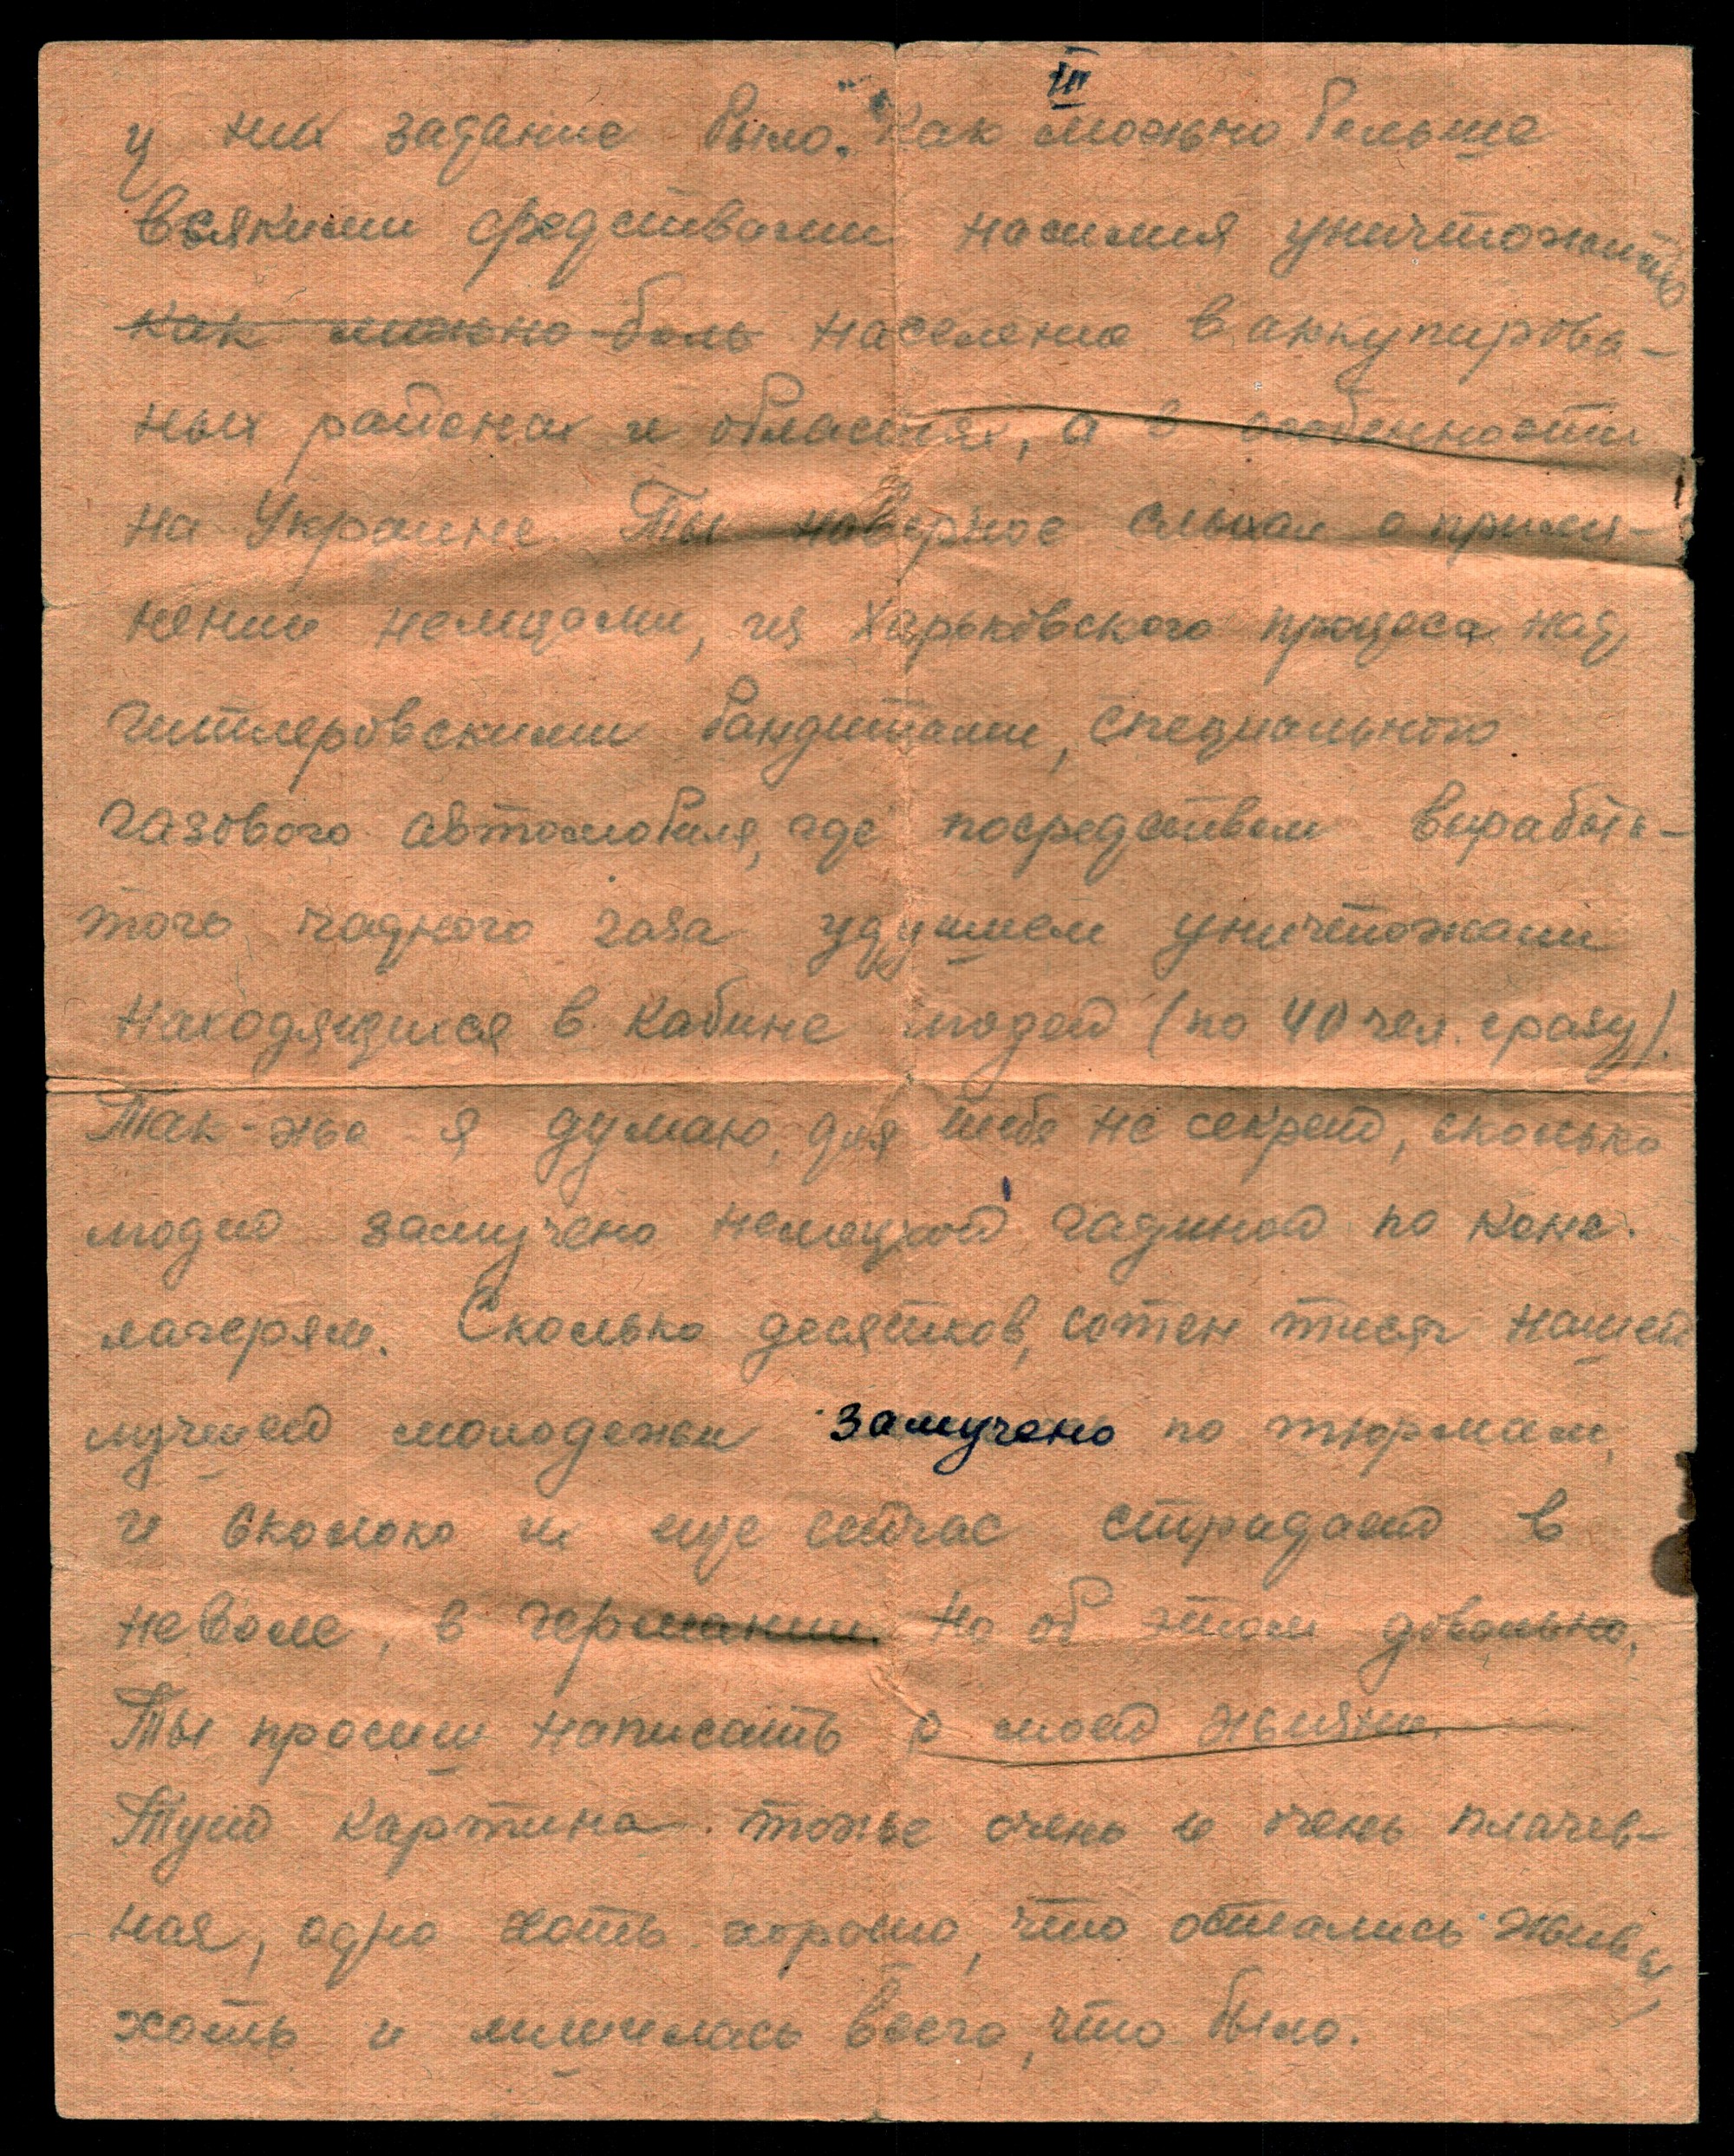 III
у них задание было. "Как можно больше
всякими средствами насилия уничтожить
как можно боль население в аккупирова-
ных районах и областях, а в особенности
на Украине. Ты наверное слыхал о приме-
нении немцами, из Харьковского процеса над
гитлеровскими бандитами, специального
газового автомобиля, где посредством вырабо-
того чадного газа удушием уничтожали
находящихся в кабине людей (по 40 чел. сразу).
Так-же я думаю, для тебя не секрет, сколько
людей замучено немецкой гадиной по конц.
лагерям. Сколько десятков, сотен тисяч нашей
лучшей молодежи замучено по тюрмам,
и сколько их еще сейчас страдает в
неволе, в германии. Но об этом довольно.
Ты просиш написать о моей жизни.
Тут картина тоже очень и очень плачев-
ная, одно хоть хорошо, что остались живы
хоть и лишилась всего, что было.